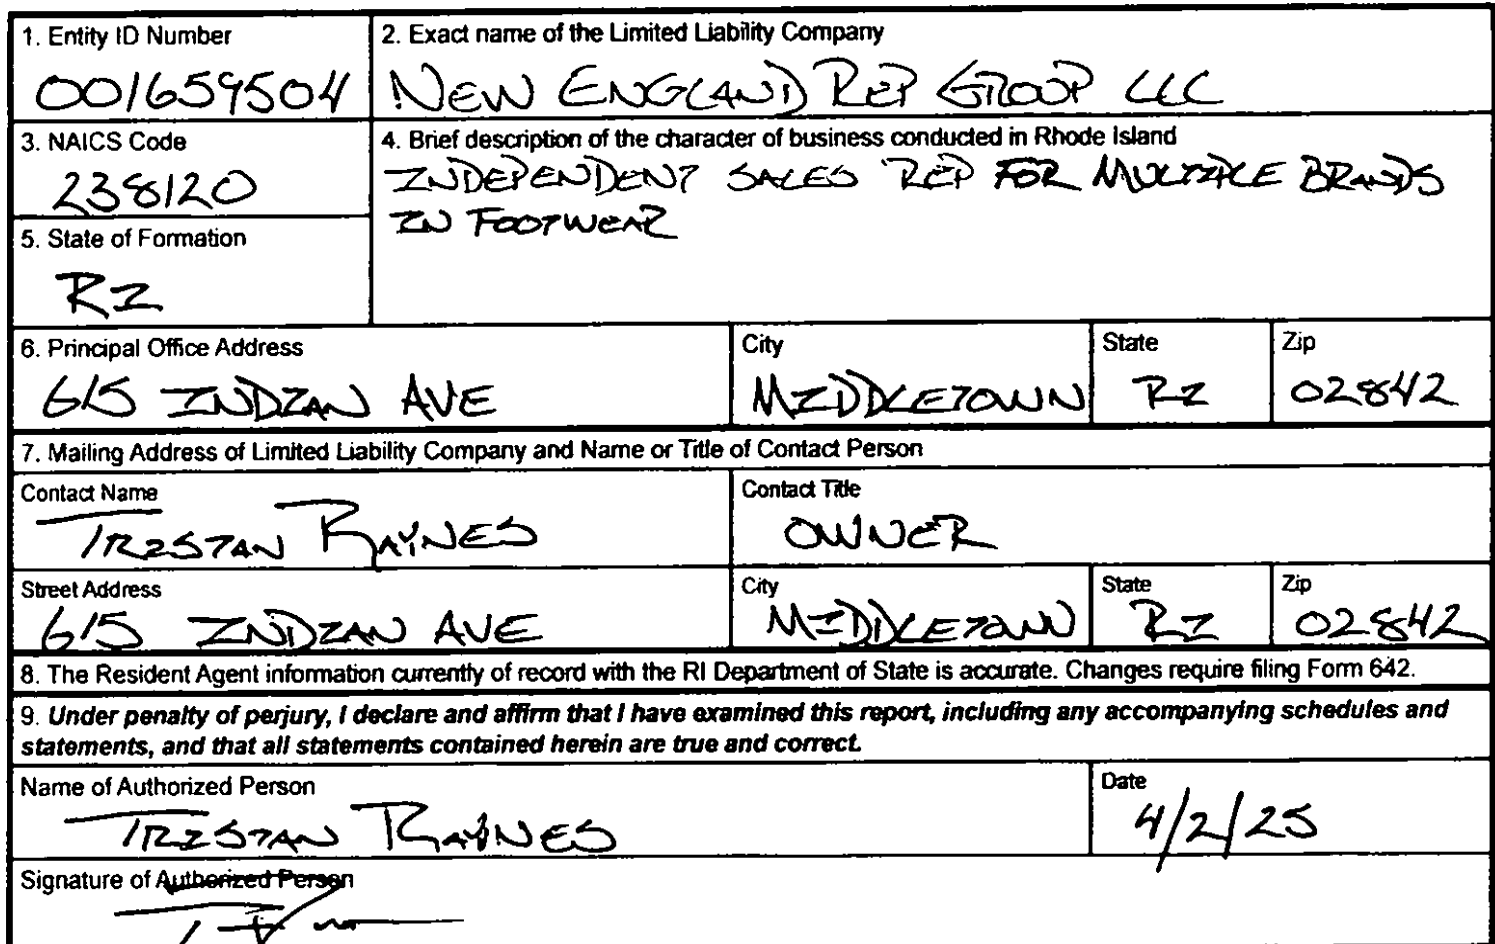 1. Entity ID Number
001659504
2. Exact name of the Limited Liability Company
NEW ENGLAND REP GROUP LLC
3. NAICS Code
238120
4. Brief description of the character of business conducted in Rhode Island
INDEPENDENT SALES REP FOR MULTIPLE BRANDS
IN FOOTWEAR
5. State of Formation
RI
6. Principal Office Address
615 INDIAN AVE
City
MIDDLETOWN
State
RI
Zip
02842
7. Mailing Address of Limited Liability Company and Name or Title of Contact Person
Contact Name
TRISTAN RAYNES
Contact Title
OWNER
Street Address
615 INDIAN AVE
City
MIDDLETOWN
State
RI
Zip
02842
8. The Resident Agent information currently of record with the RI Department of State is accurate. Changes require filing Form 642.
9. Under penalty of perjury, I declare and affirm that I have examined this report, including any accompanying schedules and
statements, and that all statements contained herein are true and correct.
Name of Authorized Person
TRISTAN RAYNES
Date
4/2/25
Signature of Authorized Person